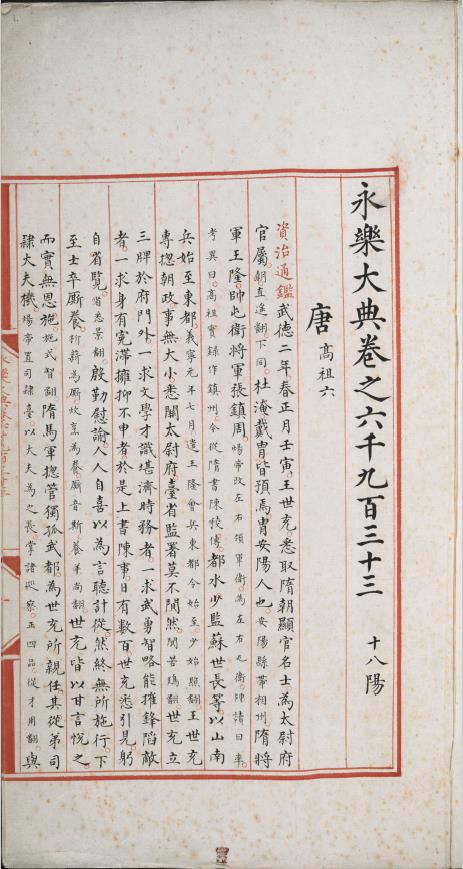 永樂大典卷之六千九百三十三 十八陽
唐 高祖六
資治通鑑武德二年春正月壬寅王世充悉取隋朝顯官名士為太尉府
官屬朝直遥翻下同杜淹戴冑皆預焉冑安陽人也安陽縣帶相州隋將
軍王隆帥屯衛將軍張鎮周煬帝改左右領軍衛為左右屯衛帥讀曰率
考異曰高祖實錄作鎮州今從隋書陳稜傳都水少監蘇世長等以山南
兵始至東都義寧元年七月遣王隆會兵東都今始至少始照翻王世充
專揔朝政事無大小悉關太尉府臺省監署莫不闃然闃苦鵙翻世充立
三牌於府門外一求文學才識堪濟時務者一求武勇智略能摧鋒陷敵
者一求身有寃滯擁抑不申者於是上書陳事日有數百世充悉引見躬
自省覽省悉景翻殷勤慰諭人人自喜以為言聽計從然終無所施行下
至士卒廝養析薪為廝炊烹為養廝音斯養羊尚翻世充皆以甘言悅之
而實無恩施施式智翻隋馬軍揔管獨孤武都為世充所親任其從弟司
隸大夫機煬帝置司隸臺以大夫為之長掌諸巡察正四品從才用翻與